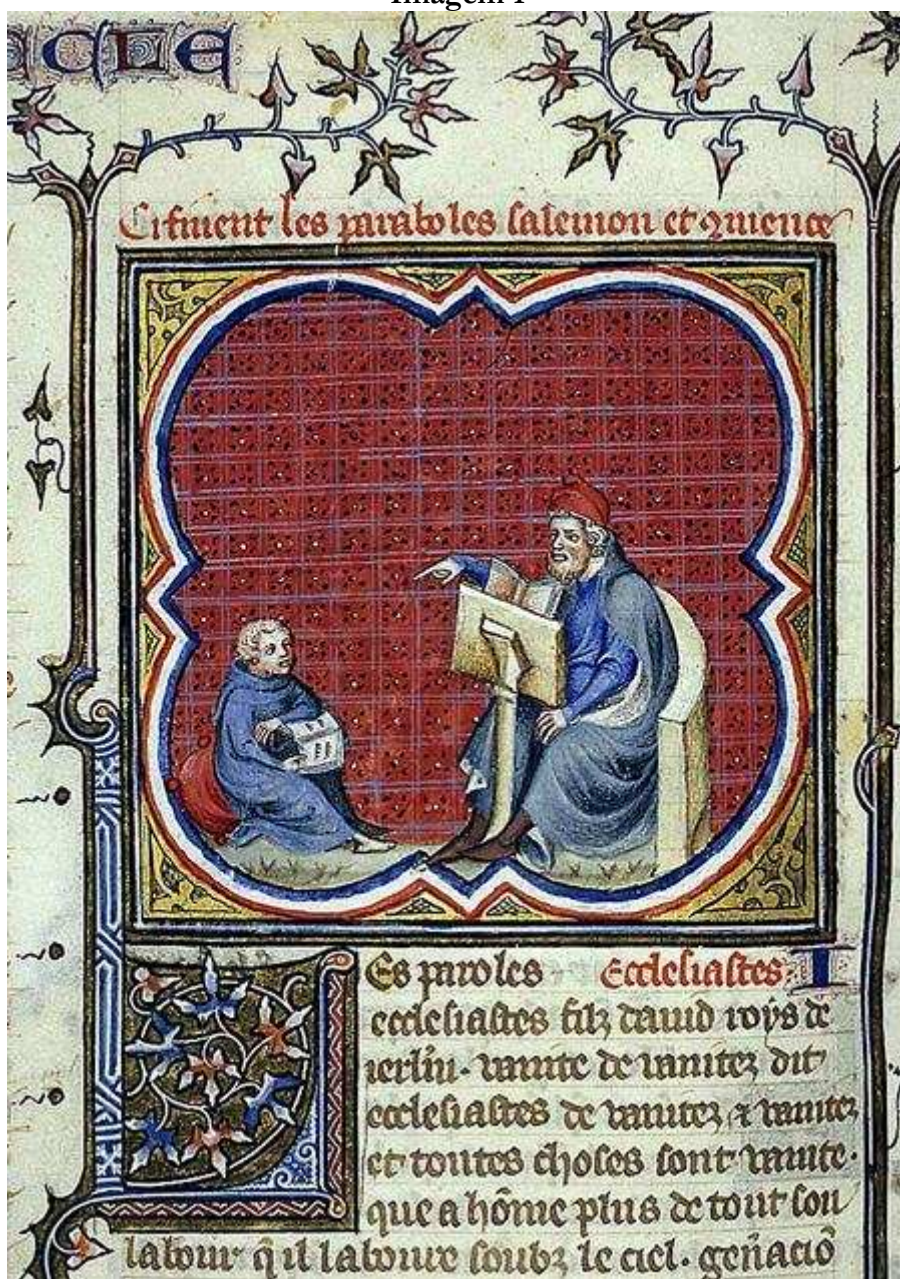 Imagem 1
ACLE
Ci finent les paraboles salemon et ꝯmence
Les paroles Ecclesiastes. I
ecclesiastes filz dauid roys de
ierlm̄. vanite de vanitez dit
ecclesiastes de vanitez ⁊ vanitez
et toutes choses sont vanite.
que a hōme plus de tout son
labour q̄ il laboure soubz le ciel. gen̄aciō